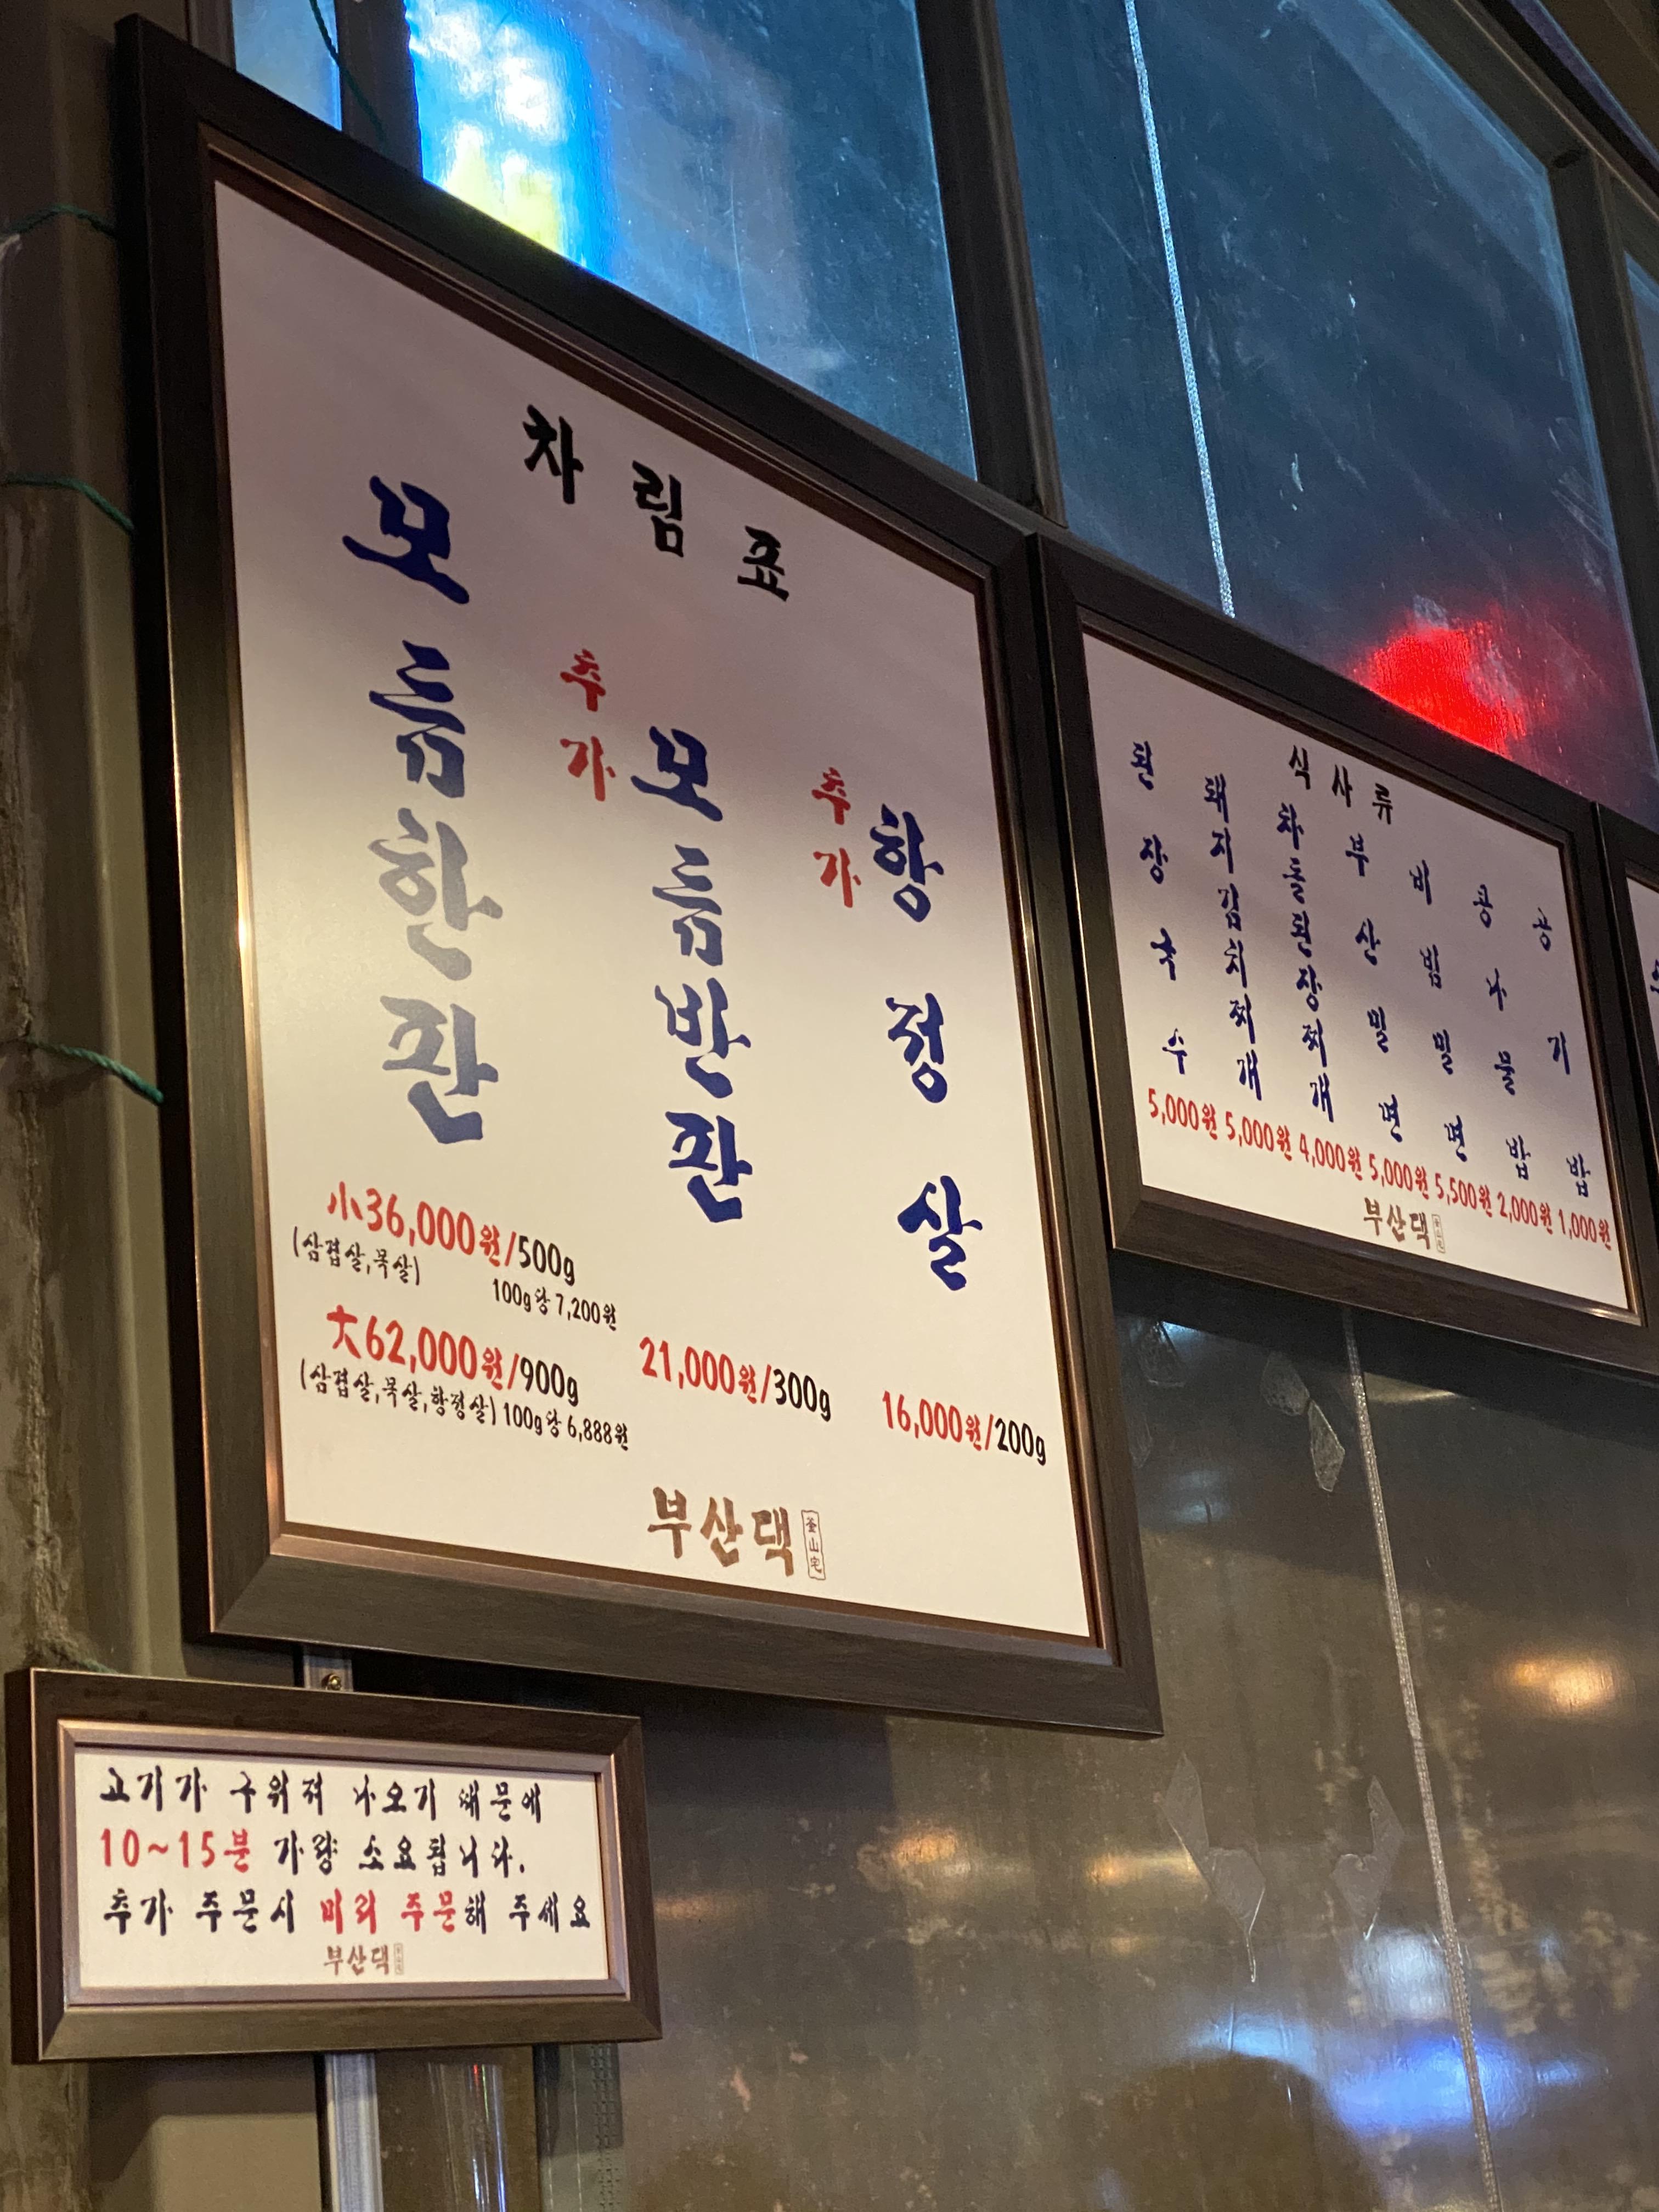 차림표
모듬한판
小36,000원/500g
(삼겹살,목살)
100g당 7,200원
大62,000원/900g
(삼겹살,목살,항정살) 100g당 6,888원
추가
모듬반판
21,000원/300g
추가
항정살
16,000원/200g
부산댁
釜山宅
식사류
된장국수
5,000원
돼지김치찌개
5,000원
차돌된장찌개
4,000원
부산밀면
5,000원
비빔밀면
5,500원
콩나물밥
2,000원
공기밥
1,000원
부산댁
고기가 구워져 나오기 때문에
10~15분 가량 소요됩니다.
추가 주문시 미리 주문해 주세요
부산댁